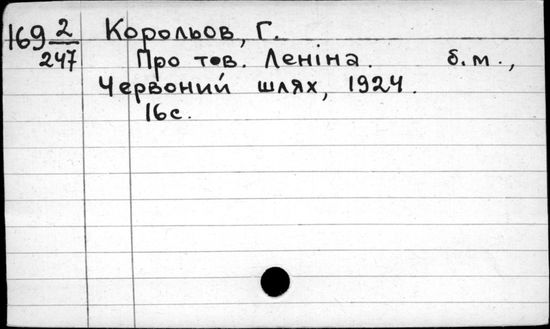 169 2/247 Корольов, Г.
Про тов. Леніна. б.м.,
Червоний шлях, 1924.
16с.